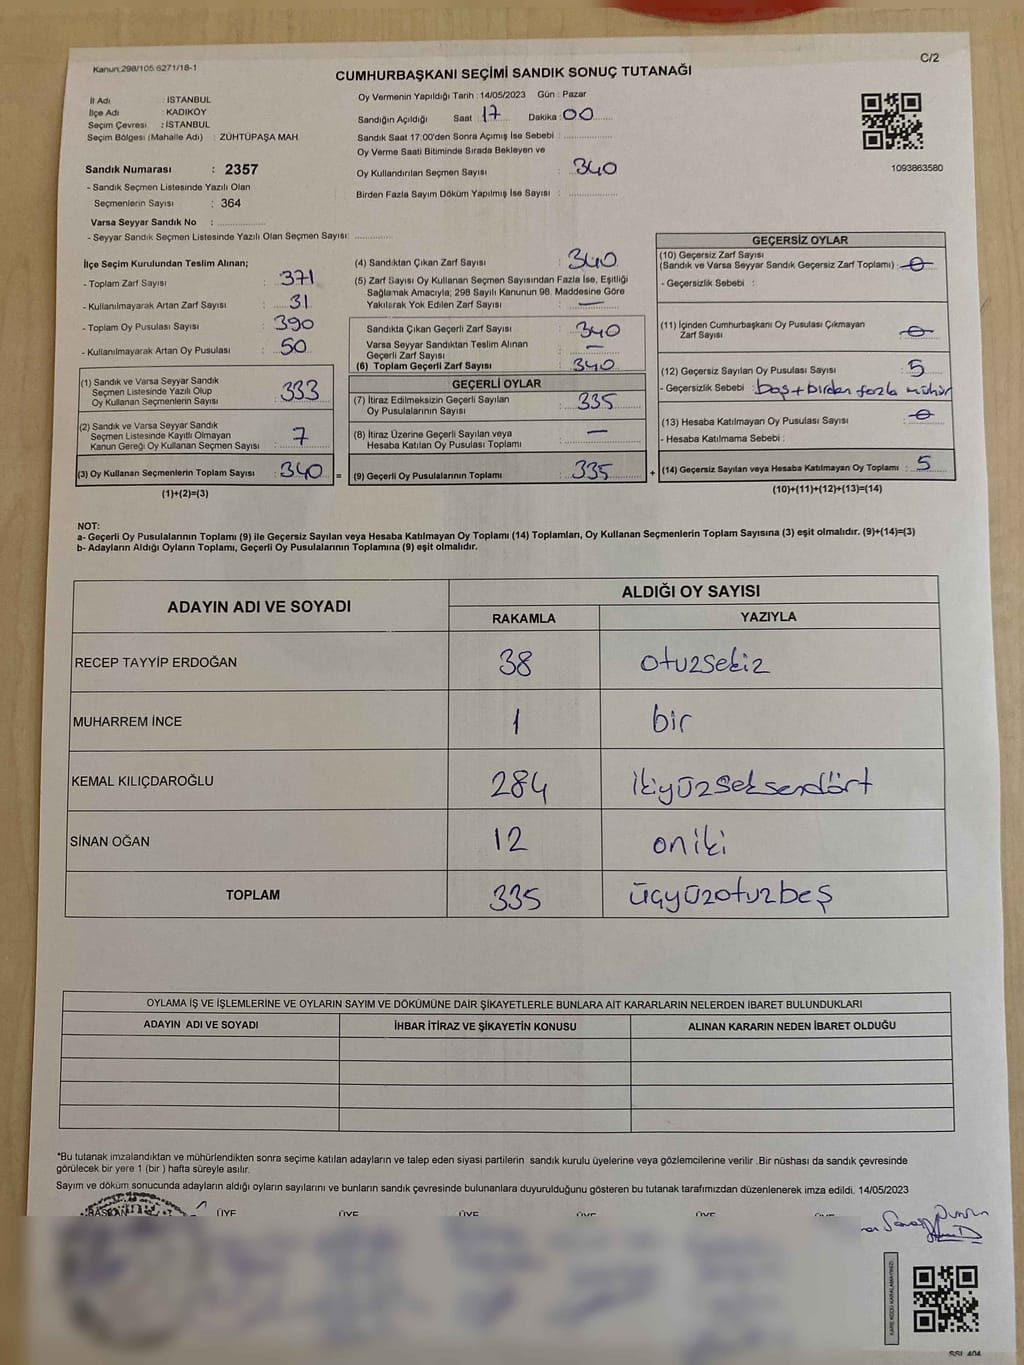 Kanun:298/105 6271/18-1
C/2
CUMHURBAŞKANI SEÇİMİ SANDIK SONUÇ TUTANAĞI
İl Adı : İSTANBUL
İlçe Adı : KADIKÖY
Seçim Çevresi : İSTANBUL
Seçim Bölgesi (Mahalle Adı) : ZÜHTÜPAŞA MAH.
Oy Vermenin Yapıldığı Tarih : 14/05/2023 Gün : Pazar
Sandığın Açıldığı Saat : 17 Dakika : 00
Sandık Saat 17:00'den Sonra Açımış İse Sebebi :
Oy Verme Saati Bitiminde Sırada Bekleyen ve
Oy Kullandırılan Seçmen Sayısı : 340
Birden Fazla Sayım Döküm Yapılmış İse Sayısı :
1093863580
Sandık Numarası : 2357
- Sandık Seçmen Listesinde Yazılı Olan
Seçmenlerin Sayısı : 364
Varsa Seyyar Sandık No :
- Seyyar Sandık Seçmen Listesinde Yazılı Olan Seçmen Sayısı:
İlçe Seçim Kurulundan Teslim Alınan;
- Toplam Zarf Sayısı : 371
- Kullanılmayarak Artan Zarf Sayısı : 31
- Toplam Oy Pusulası Sayısı : 390
- Kullanılmayarak Artan Oy Pusulası : 50
(1) Sandık ve Varsa Seyyar Sandık
Seçmen Listesinde Yazılı Olup
Oy Kullanan Seçmenlerin Sayısı : 333
(2) Sandık ve Varsa Seyyar Sandık
Seçmen Listesinde Kayıtlı Olmayan
Kanun Gereği Oy Kullanan Seçmen Sayısı : 7
(3) Oy Kullanan Seçmenlerin Toplam Sayısı : 340 =
(1)+(2)=(3)
(4) Sandıktan Çıkan Zarf Sayısı : 340
(5) Zarf Sayısı Oy Kullanan Seçmen Sayısından Fazla İse, Eşitliği
Sağlamak Amacıyla, 298 Sayılı Kanunun 98. Maddesine Göre
Yakılarak Yok Edilen Zarf Sayısı : —
Sandıkta Çıkan Geçerli Zarf Sayısı : 340
Varsa Seyyar Sandıktan Teslim Alınan
Geçerli Zarf Sayısı : —
(6) Toplam Geçerli Zarf Sayısı : 340
GEÇERLİ OYLAR
(7) İtiraz Edilmeksizin Geçerli Sayılan
Oy Pusulalarının Sayısı : 335
(8) İtiraz Üzerine Geçerli Sayılan veya
Hesaba Katılan Oy Pusulası Toplamı : —
(9) Geçerli Oy Pusulalarının Toplamı : 335 +
GEÇERSİZ OYLAR
(10) Geçersiz Zarf Sayısı
(Sandık ve Varsa Seyyar Sandık Geçersiz Zarf Toplamı) : 0
- Geçersizlik Sebebi :
(11) İçinden Cumhurbaşkanı Oy Pusulası Çıkmayan
Zarf Sayısı : 0
(12) Geçersiz Sayılan Oy Pusulası Sayısı : 5
- Geçersizlik Sebebi : boş + birden fazla mühür
(13) Hesaba Katılmayan Oy Pusulası Sayısı : 0
- Hesaba Katılmama Sebebi :
(14) Geçersiz Sayılan veya Hesaba Katılmayan Oy Toplamı : 5
(10)+(11)+(12)+(13)=(14)
NOT:
a- Geçerli Oy Pusulalarının Toplamı (9) ile Geçersiz Sayılan veya Hesaba Katılmayan Oy Toplamı (14) Toplamları, Oy Kullanan Seçmenlerin Toplam Sayısına (3) eşit olmalıdır. (9)+(14)=(3)
b- Adayların Aldığı Oyların Toplamı, Geçerli Oy Pusulalarının Toplamına (9) eşit olmalıdır.
ADAYIN ADI VE SOYADI ALDIĞI OY SAYISI
RAKAMLA YAZIYLA
RECEP TAYYİP ERDOĞAN 38 otuzsekiz
MUHARREM İNCE 1 bir
KEMAL KILIÇDAROĞLU 284 İkiyüzseksendört
SİNAN OĞAN 12 oniki
TOPLAM 335 üçyüzotuzbeş
OYLAMA İŞ VE İŞLEMLERİNE VE OYLARIN SAYIM VE DÖKÜMÜNE DAİR ŞİKAYETLERLE BUNLARA AİT KARARLARIN NELERDEN İBARET BULUNDUKLARI
ADAYIN ADI VE SOYADI İHBAR İTİRAZ VE ŞİKAYETİN KONUSU ALINAN KARARIN NEDEN İBARET OLDUĞU
*Bu tutanak imzalandıktan ve mühürlendikten sonra seçime katılan adayların ve talep eden siyasi partilerin sandık kurulu üyelerine veya gözlemcilerine verilir .Bir nüshası da sandık çevresinde
görülecek bir yere 1 (bir ) hafta süreyle asılır.
Sayım ve döküm sonucunda adayların aldığı oyların sayılarını ve bunların sandık çevresinde bulunanlara duyurulduğunu gösteren bu tutanak tarafımızdan düzenlenerek imza edildi. 14/05/2023
BAŞKAN ÜYE ÜYE ÜYE ÜYE ÜYE